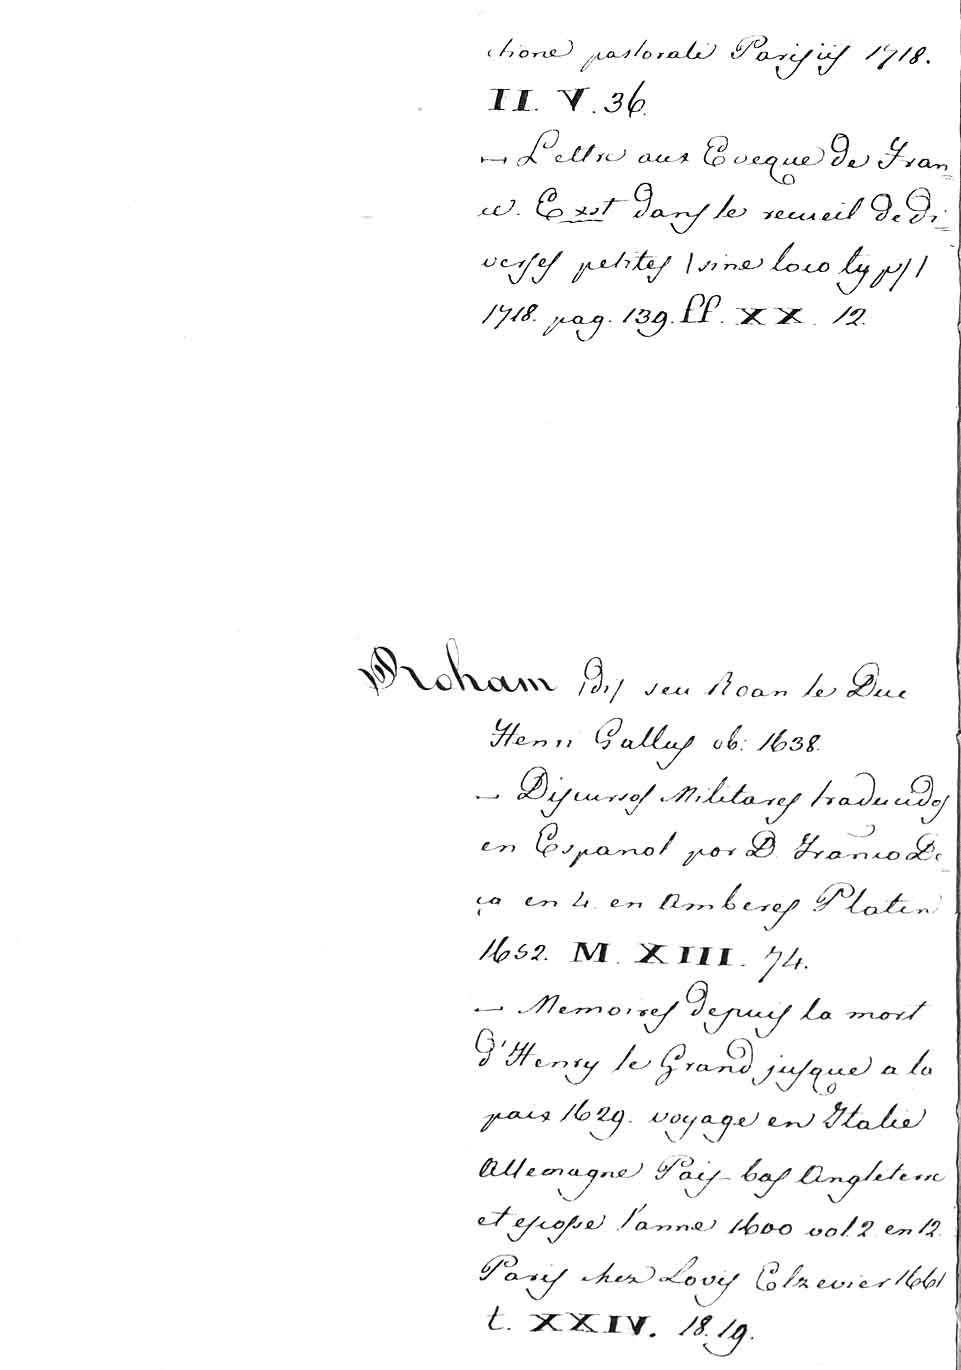 ctione pastorali Parisiis 1718.
II. V. 36.
— Lettre aux Eveque de Fran=
ce. Exst dans le recueil de di=
verses petites | sine loco typs |
1718. pag. 139. ff. XX. 12.
Roham dis seu Roan le Duc
Henri Gallus ob: 1638.
— Discursos Militares traducidos
en Espanol por D. Franco De=
ça en 4. en Amberes Platin
1652. M. XIII. 74.
— Memoires depuis la mort
d'Henry le Grand jusque a la
paix 1629. voyage en Italie
Allemagne Pais-bas Angleterre
et escosse l'anne 1600 vol. 2 en 12.
Paris chez Lovis Elzevier 1661
t. XXIV. 18. 19.